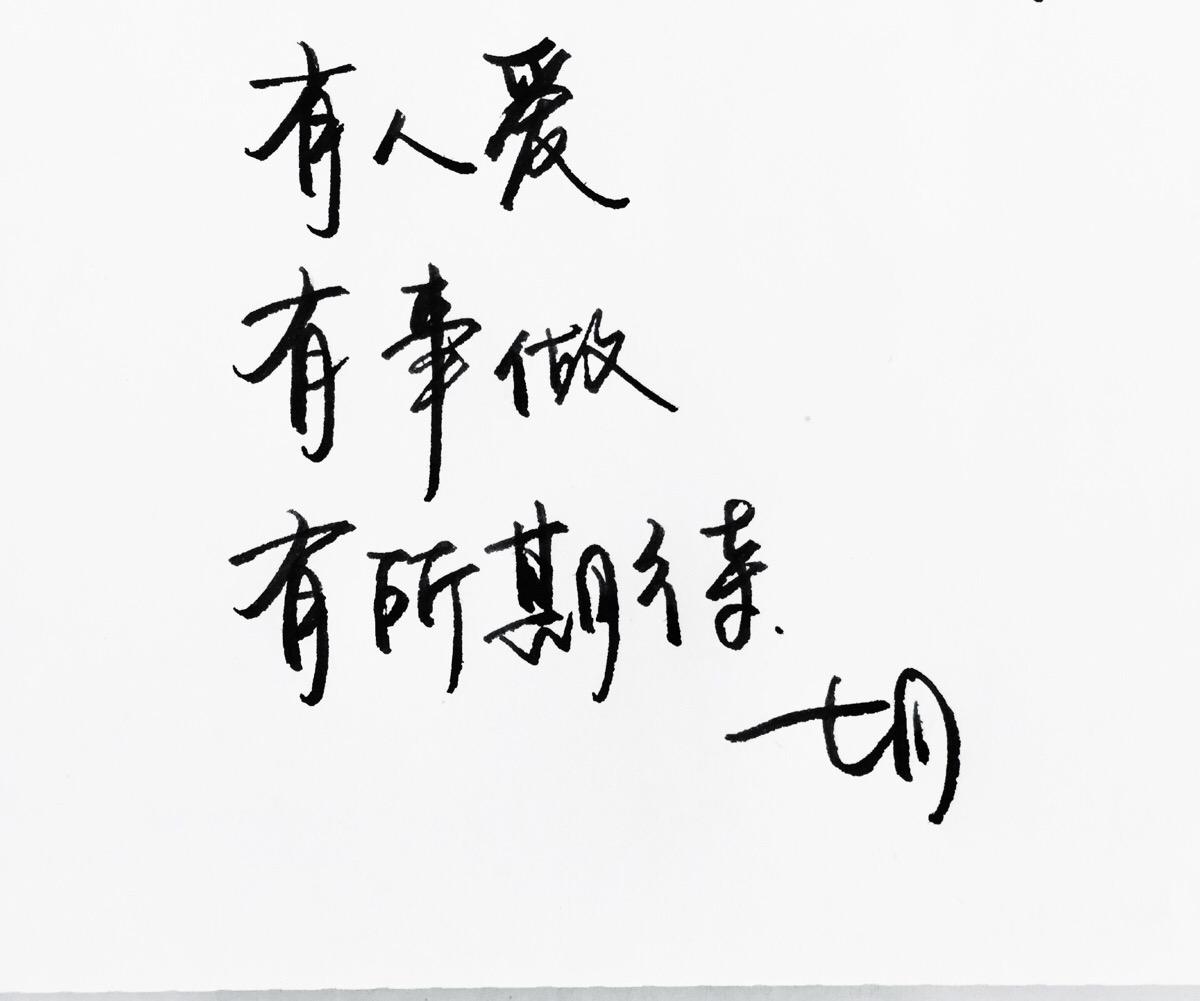 有人爱
有事做
有所期待.
七月